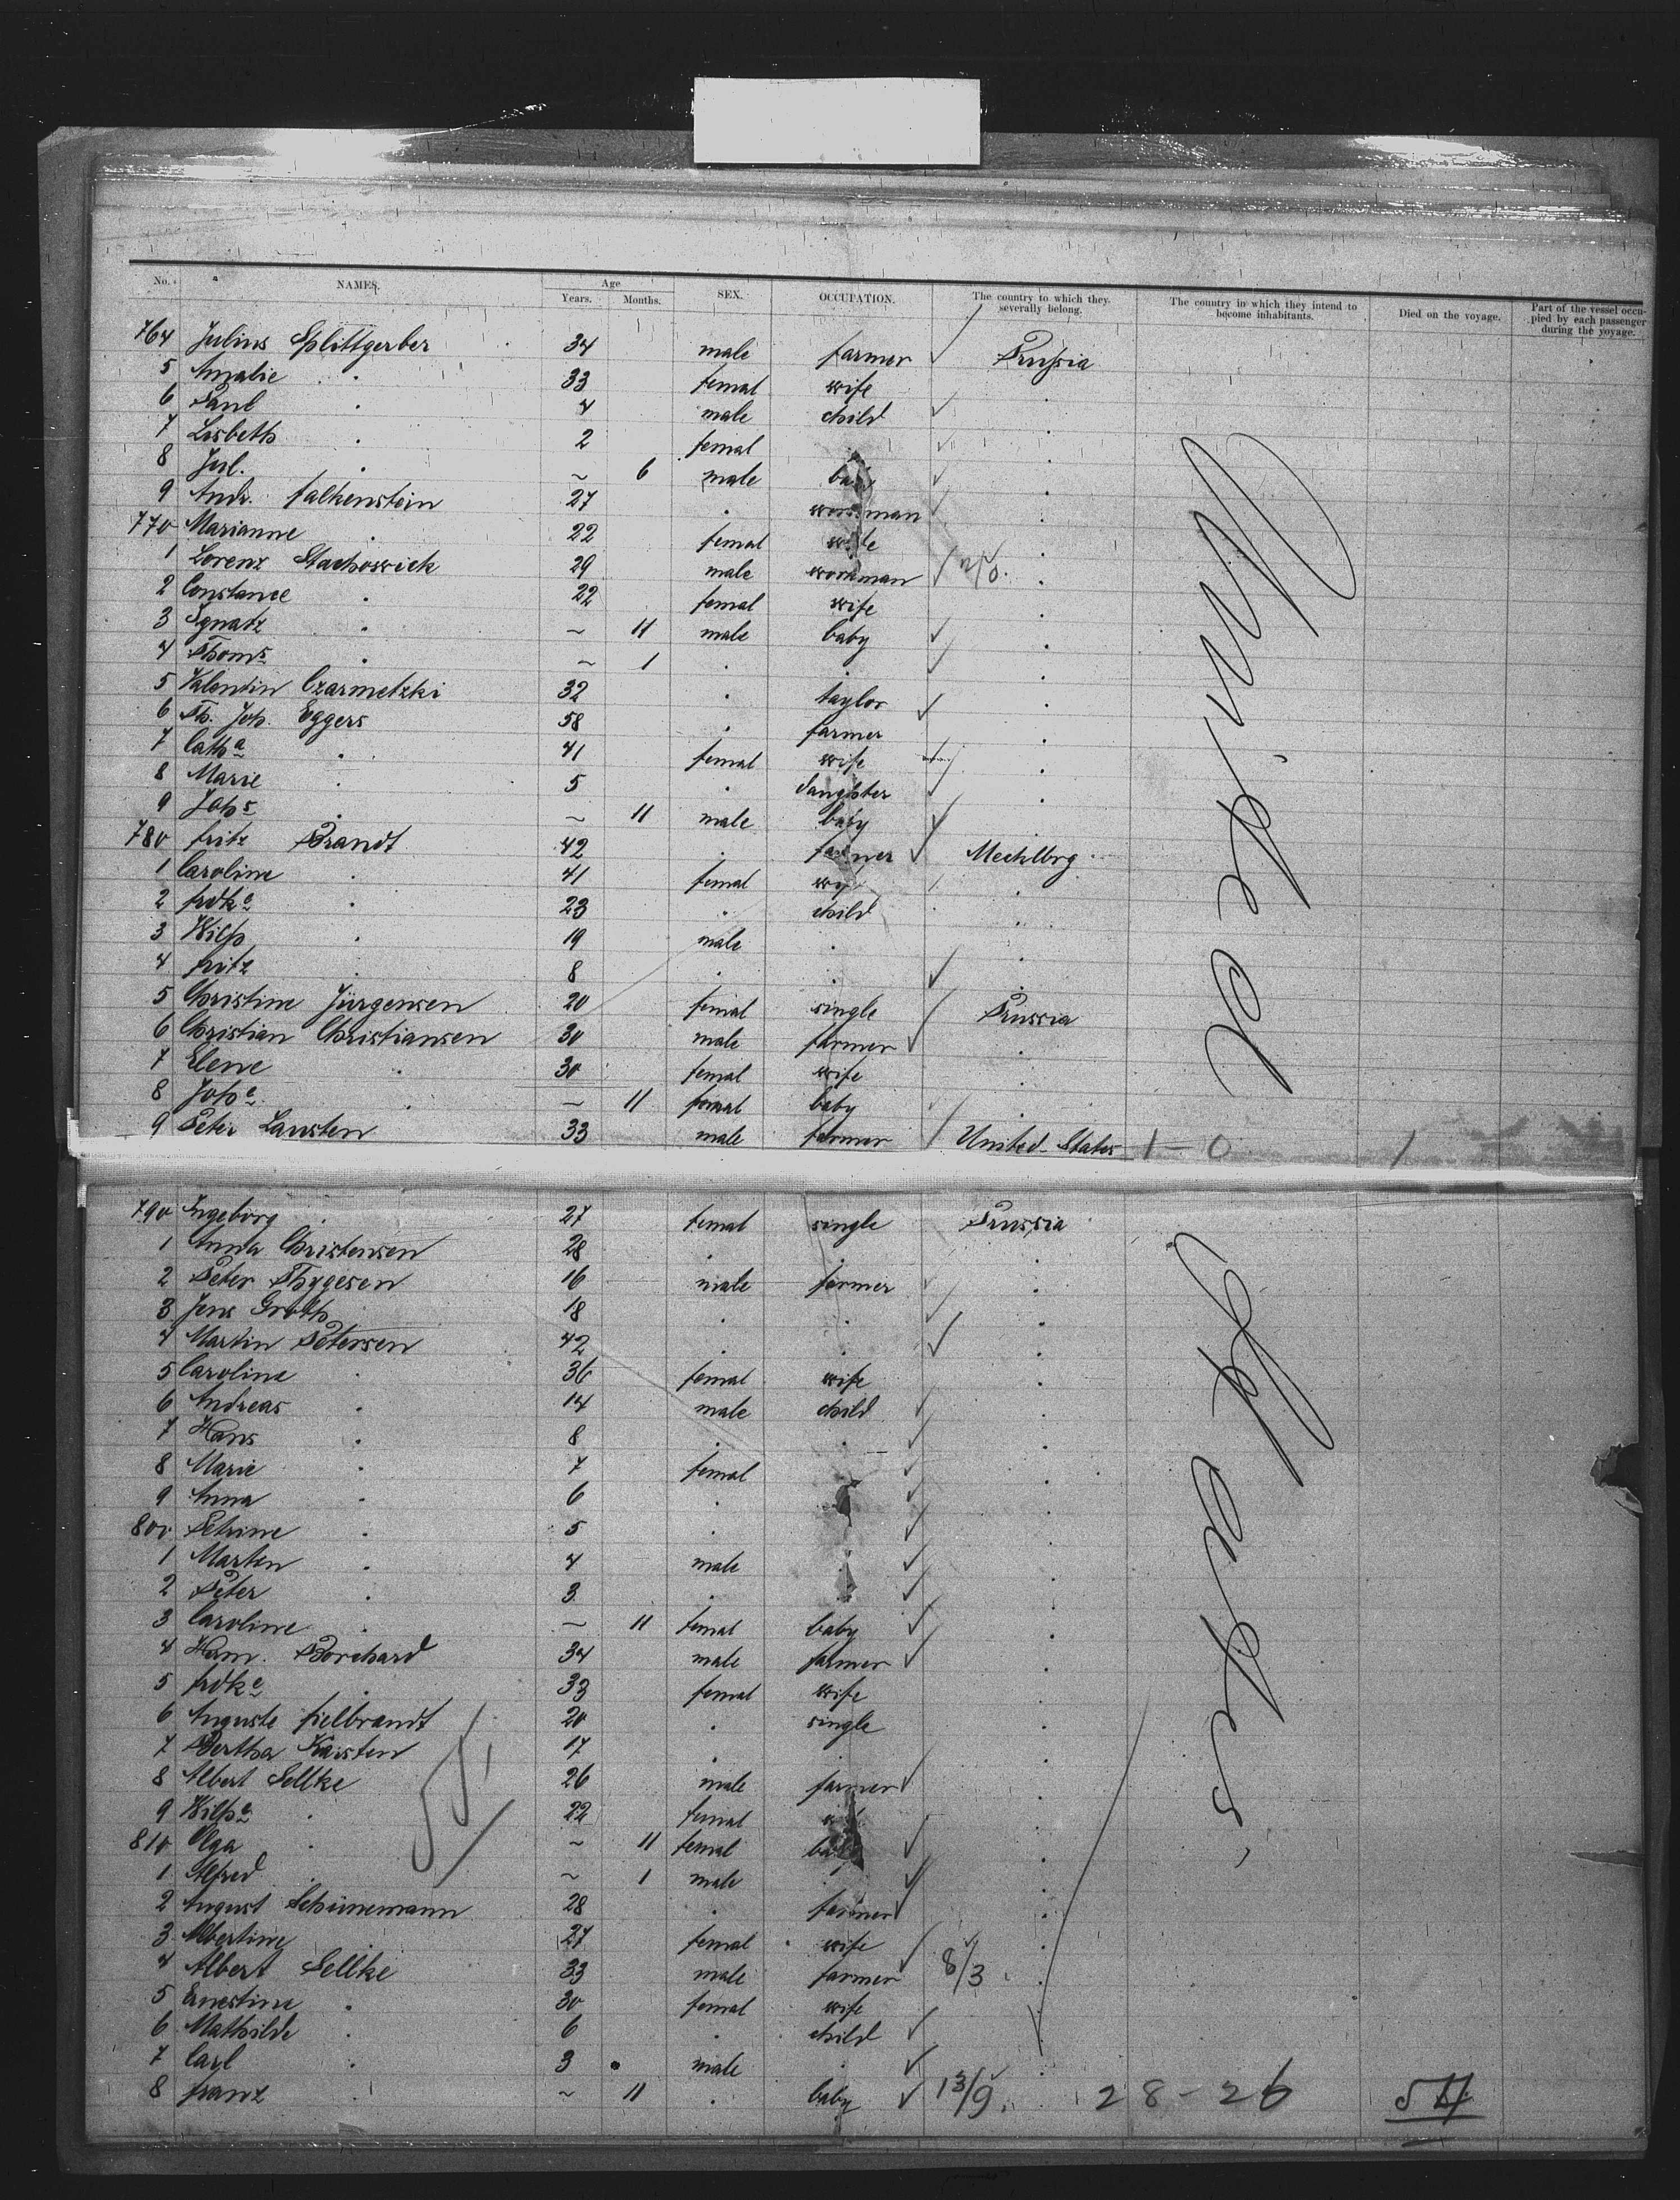 No. NAMES. Age Years. Months. SEX. OCCUPATION. The country to which they severally belong. The country in which they intend to become inhabitants. Died on the voyage. Part of the vessel occupied by each passenger during the voyage.
764 Julius Splittgerber 34 male farmer Prussia
5 Amalie . 33 femal wife .
6 Paul . 4 male child .
7 Lisbeth . 2 femal . .
8 Jul. . ~ 6 male baby .
9 Andr. Falkenstein 27 . workman .
770 Marianne . 22 femal wife .
1 Lorenz Stachowick 29 male workman 2/0. .
2 Constance . 22 femal wife .
3 Ignatz . ~ 11 male baby .
4 Thoms . ~ 1 . . .
5 Valentin Czarmetzki 32 . taylor .
6 Th. Joh. Eggers 58 . farmer .
7 Catha . 41 femal wife .
8 Marie . 5 . daughter .
9 Johs . ~ 11 male baby .
780 Fritz Brandt 42 . farmer Mecklbrg.
1 Caroline . 41 femal wife .
2 Frdke . 23 . child .
3 Wilh . 19 male . .
4 Fritz . 8 . . .
5 Christine Jürgensen 20 femal single Prussia
6 Christian Christiansen 30 male farmer .
7 Elene . 30 femal wife .
8 Johe . — 11 femal baby .
9 Peter Lausten 33 male farmer United States 1 - 0 1
790 Ingeborg . 27 femal single Prussia
1 Anna Christensen 28 . . .
2 Peter Thygesen 16 male farmer .
3 Jens Groth 18 . . .
4 Martin Petersen 42 . . .
5 Caroline . 36 femal wife .
6 Andreas . 14 male child .
7 Hans . 8 . . .
8 Marie . 7 femal .
9 Anna . 6 . .
800 Petrine . 5 . .
1 Marten . 4 male . .
2 Peter . 3 . .
3 Caroline . — 11 femal baby .
4 Herm. Borchard 34 male farmer .
5 Frdke . 33 femal wife
6 Auguste Fielbrandt 20 . single .
7 Bertha Karsten 17 . . .
8 Albert Sellke 26 male farmer .
9 Wilhe . 22 femal .
810 Olga . ~ 11 femal baby .
1 Alfred . ~ 1 male . .
2 August Schünemann 28 . farmer .
3 Albertine . 27 femal wife .
4 Albert Sellke 33 male farmer 8/3 .
5 Ernestine . 30 femal wife .
6 Mathilde . 6 . child .
7 Carl . 3 male . .
8 Franz . ~ 11 . baby 13/9. 28 - 26 54
United
States
55